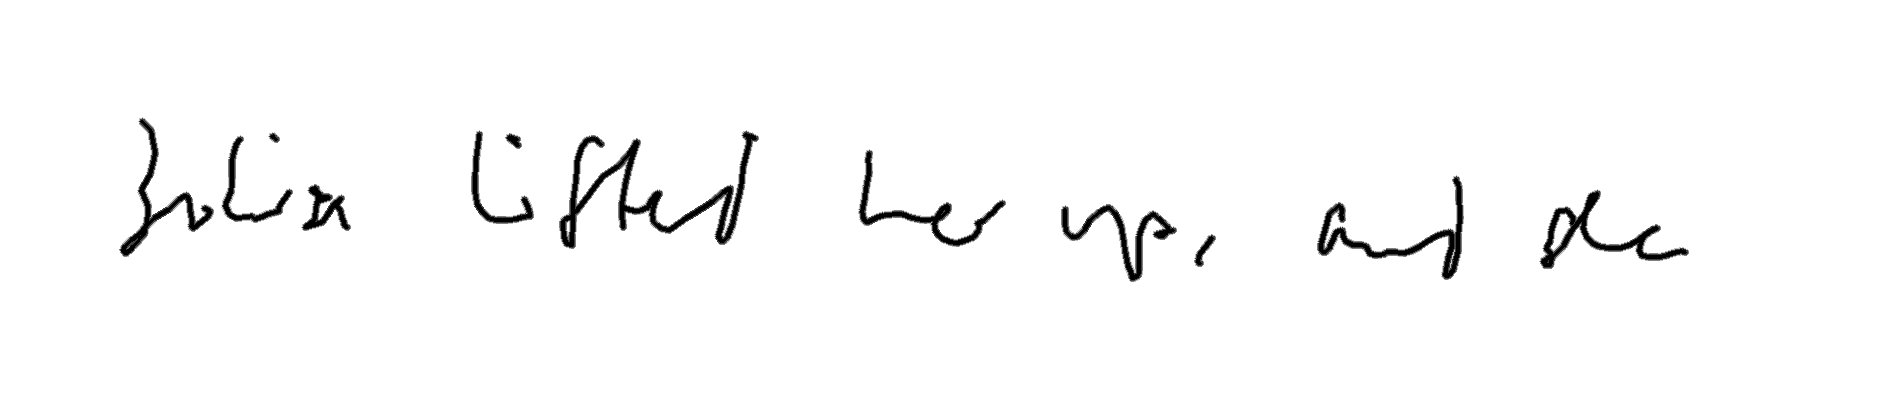 Julia lifted her up, and she